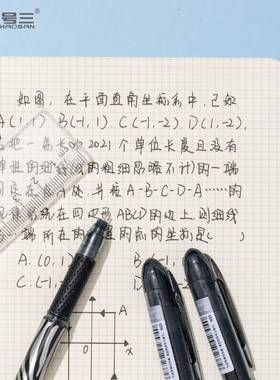 号三
HAOSAN
如图,在平面直角坐标系中,已知
A(1,1).B(-1,1).C(-1,-2).D(1,-2),
把一条长为2021个单位长度且没有
弹性的细线(线的粗细忽略不计)的一端
在点A处,并按A-B-C-D-A……的
在四边形ABCD的边上,则细线
端所在的位置的点的坐标是(
A.(0,1)
B.(-1,
C.(-1,-
D
(1,-2)
A
O
x